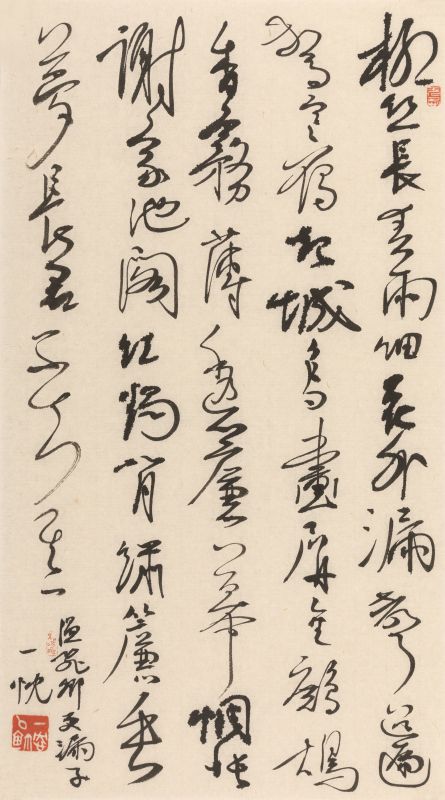 柳絲長春雨細花外漏聲迢遞
驚塞雁起城烏畫屏金鷓鴣
香霧薄透簾幕惆悵
謝家池閣紅燭背繡簾垂
夢長君不知 其一
溫飛卿更漏子
一忱